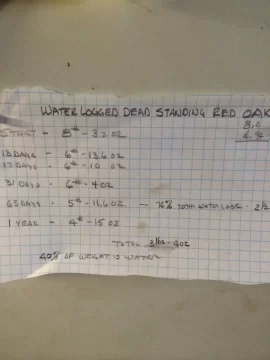 WATER LOGGED DEAD STANDING RED OAK
START - 8# - 3.2 OZ
13 DAYS - 6# - 13.6 OZ
17 DAYS - 6# - 10 OZ
31 DAYS - 6# - 4 OZ
63 DAYS - 5# - 11.6 OZ - 76% TOTAL WATER LOSS -
1 YEAR - 4# - 15 OZ
TOTAL 3 lbs - 4 OZ
40% OF WEIGHT IS WATER